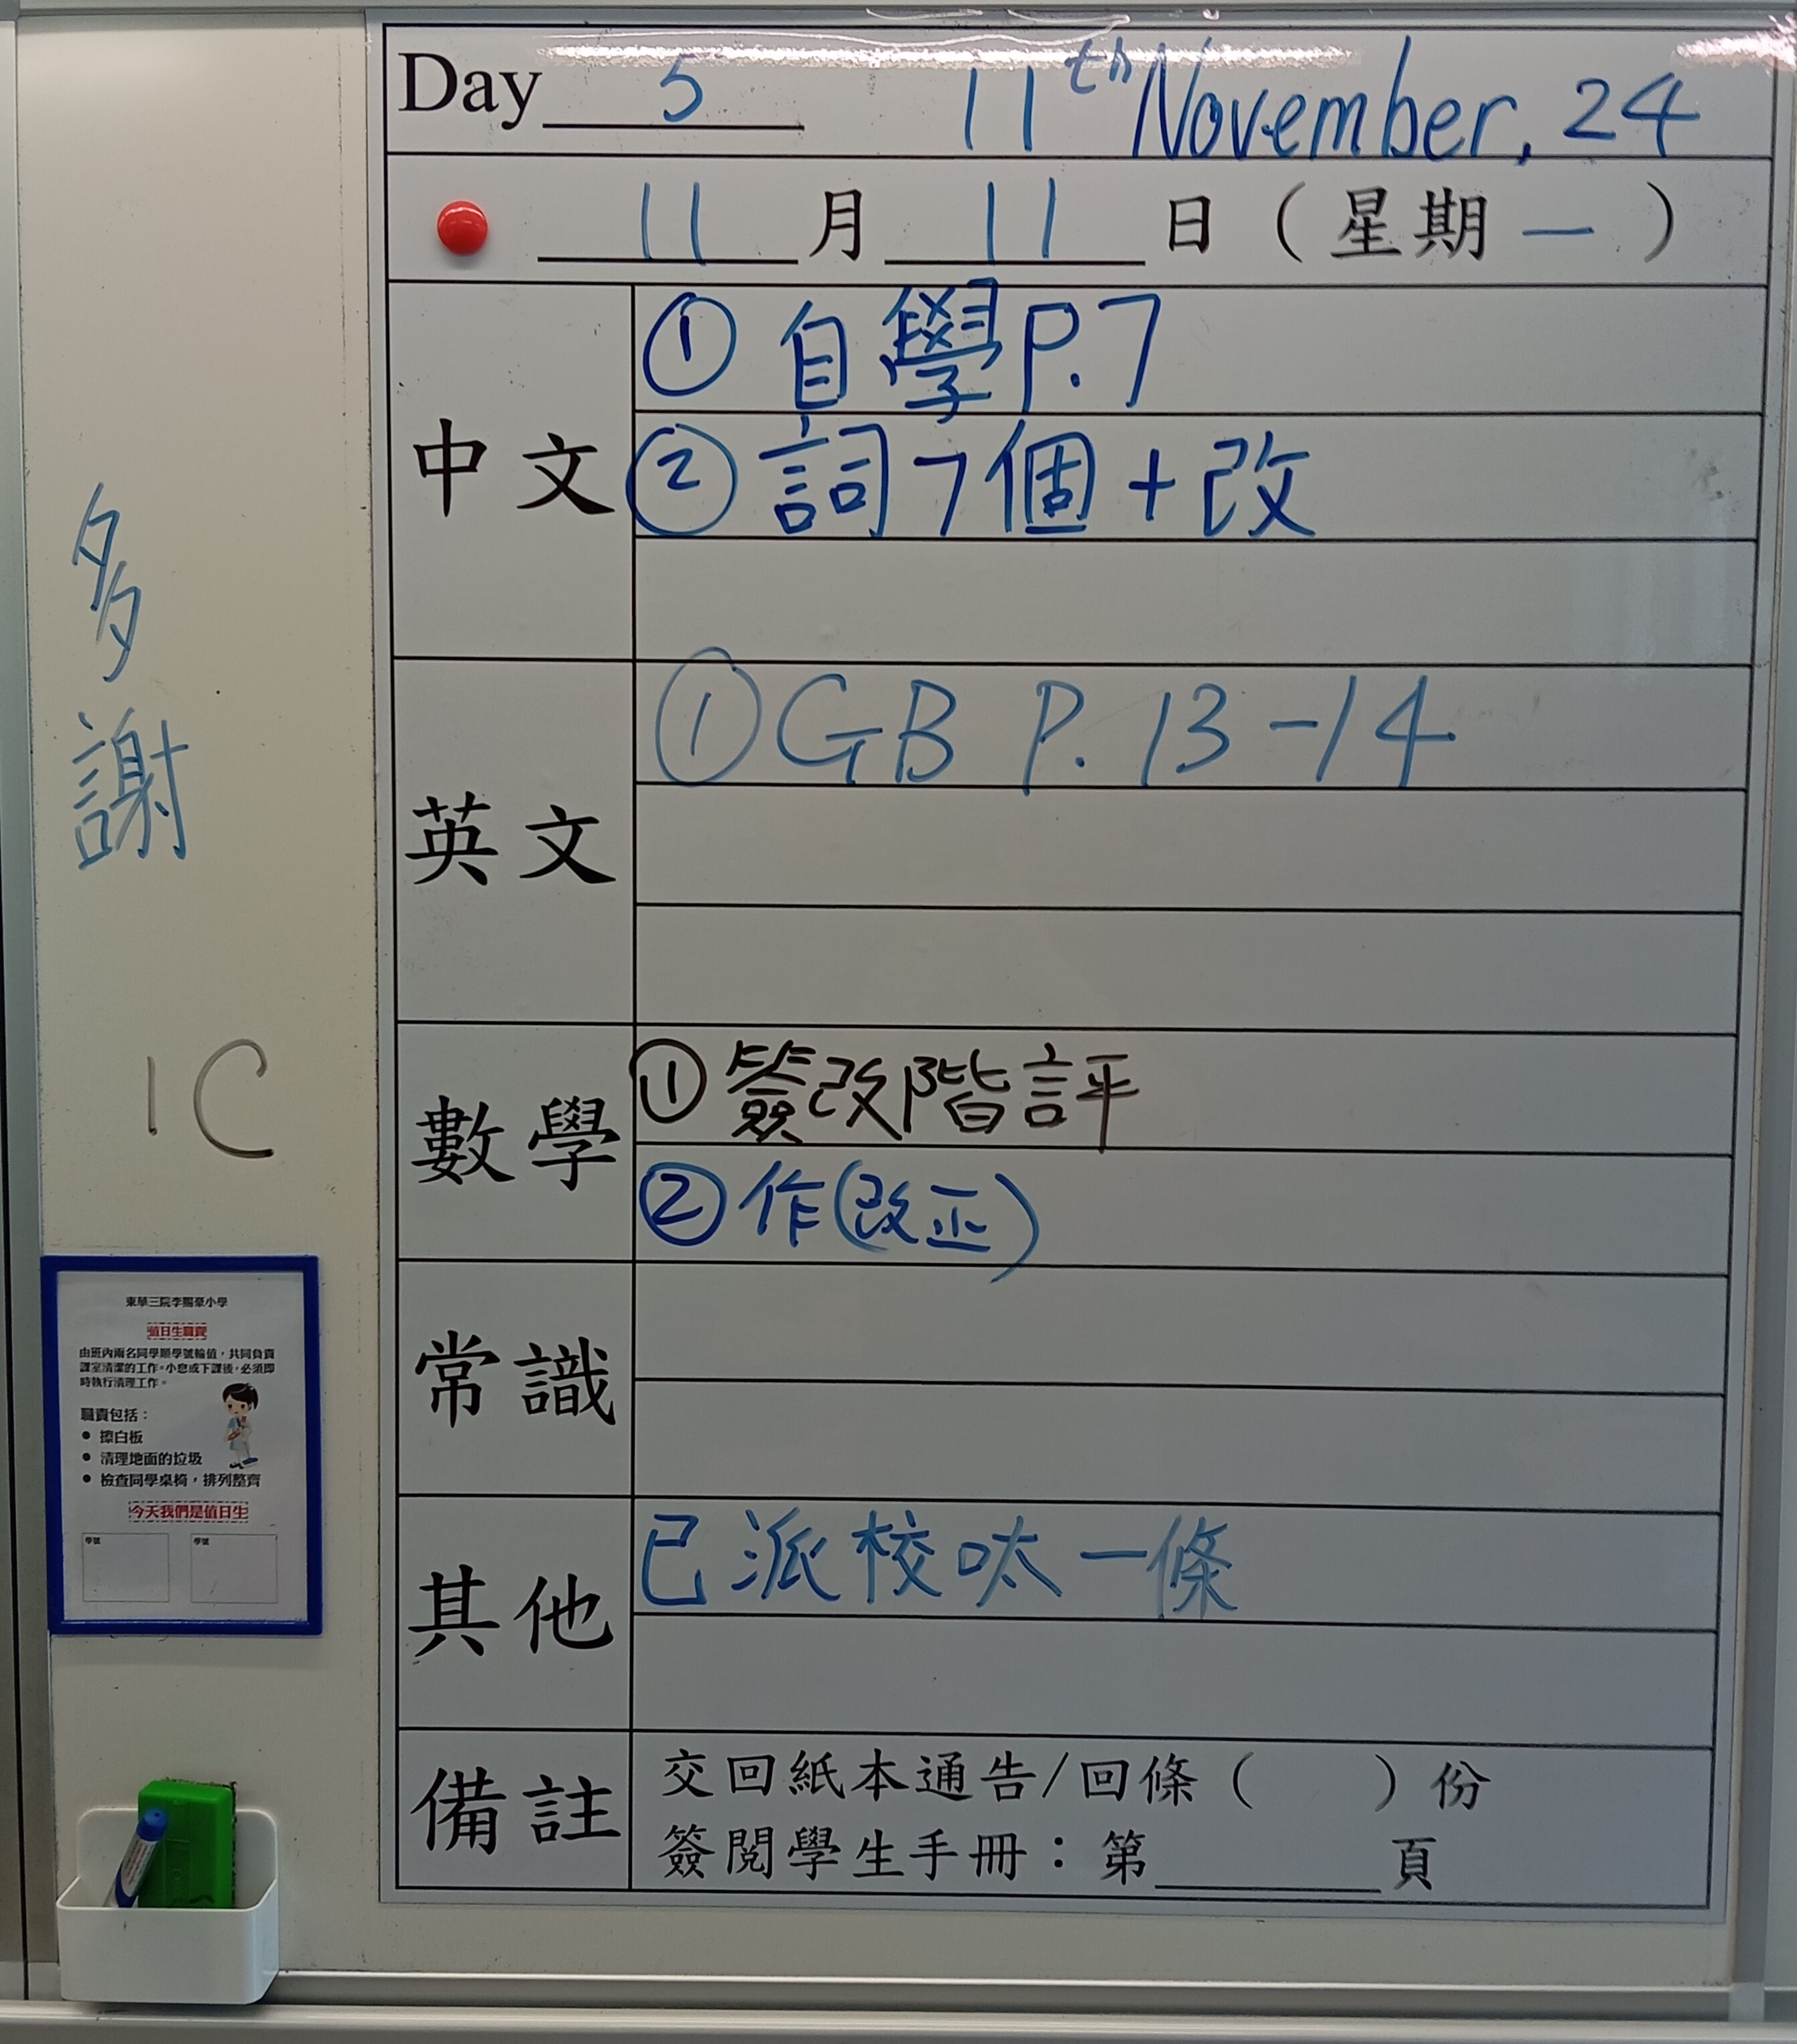 Day 5 11th November, 24
11月11日（星期一）
中文
① 自學P.7
② 詞7個+改
英文
① GB P.13-14
數學
① 簽改階評
② 作(改正)
常識
其他
已派校呔一條
備註
交回紙本通告/回條（ ）份
簽閱學生手冊：第______頁
多謝
1C
東華三院李賜豪小學
值日生職責
由班內兩名同學順學號輪值，共同負責
課室清潔的工作。小息或下課後，必須即
時執行清理工作。
職責包括：
● 擦白板
● 清理地面的垃圾
● 檢查同學桌椅，排列整齊
今天我們是值日生
學號 學號